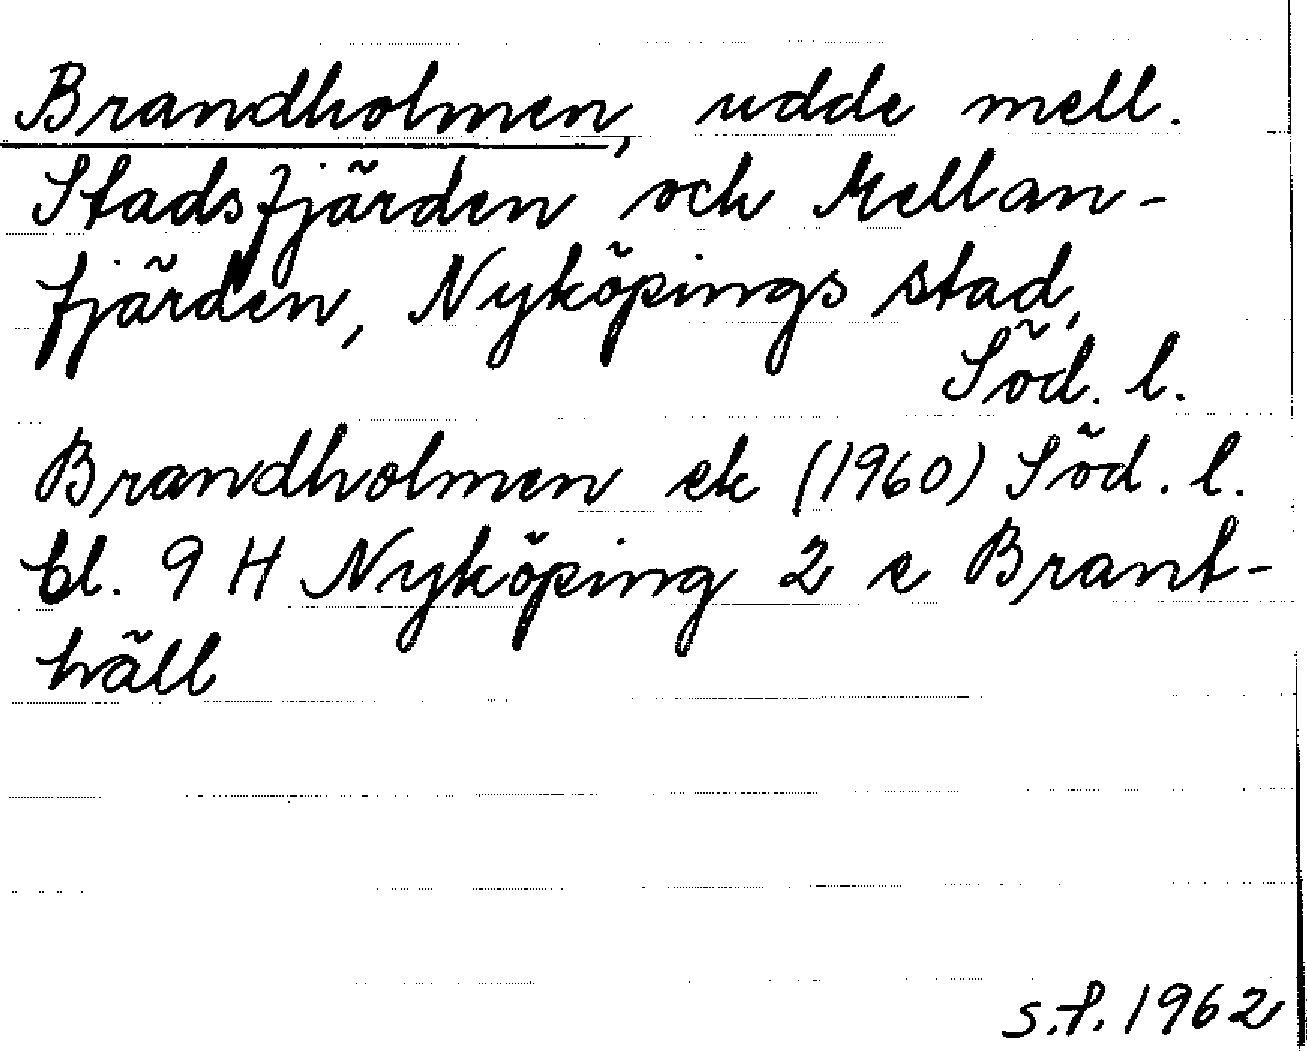 Brandholmen, udde mell.
Stadsfjärden och Mellan-
fjärden, Nyköpings stad,
Söd. l.
Brandholmen ek (1960) Söd. l.
bl. 9 H Nyköping 2 e Brant-
häll
s.f. 1962